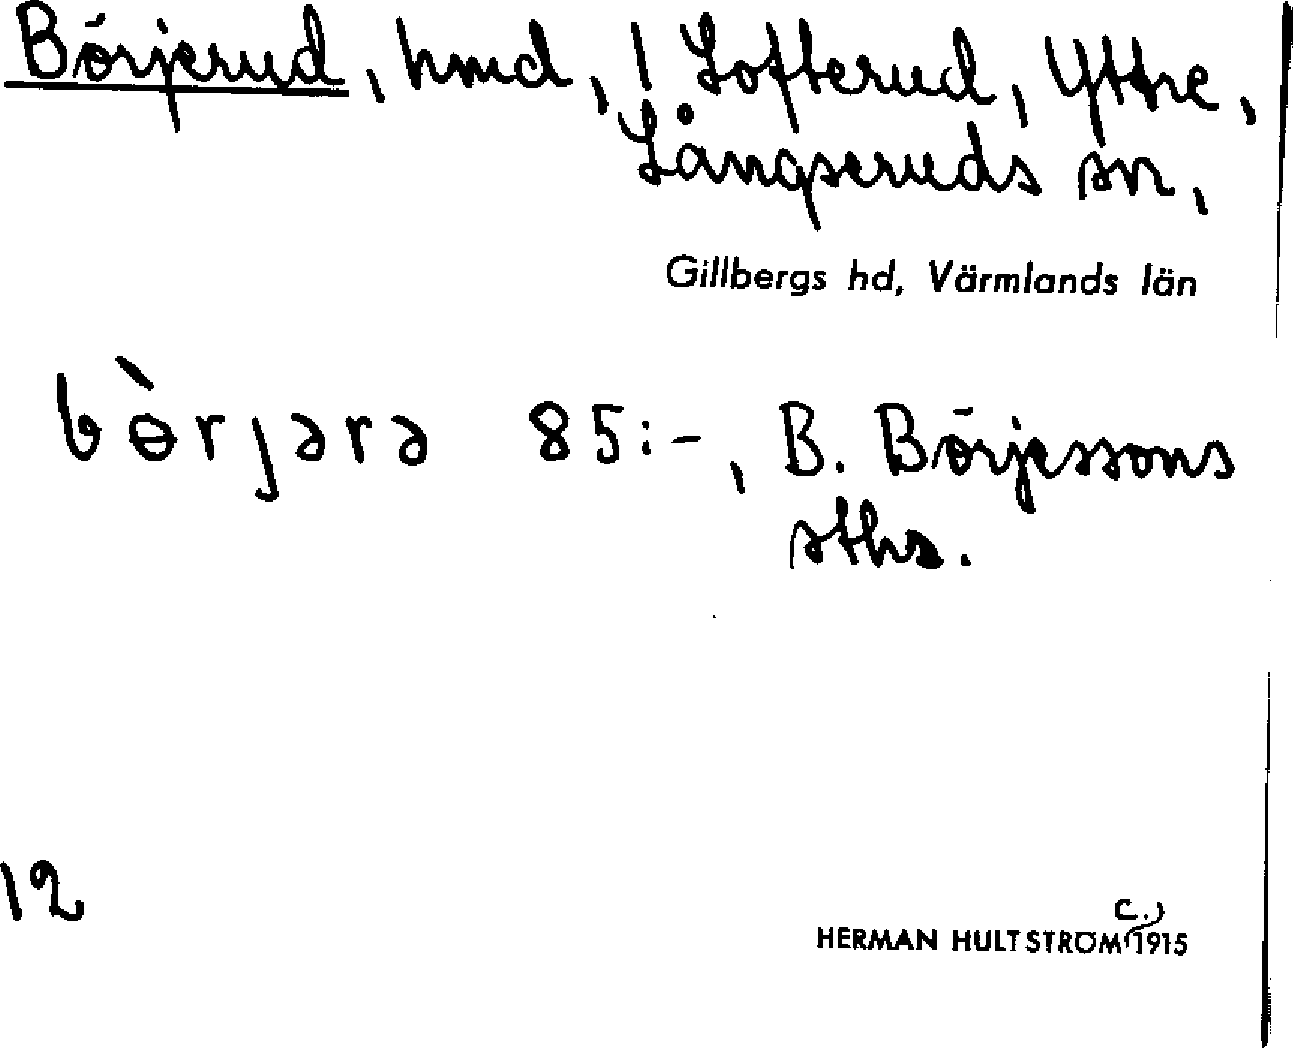 Börjerud, hmd, ! Lofterud, Yttre,
Långseruds sn,
Gillbergs hd, Värmlands län
bɵ̀rjərə 85:-, B. Börjessons
sths.
12
c.)
HERMAN HULTSTRÖM 1915